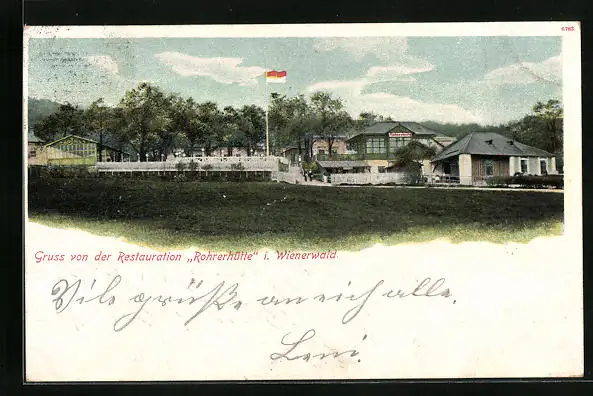 6762
Gruss von der Restauration „Rohrerhütte" i. Wienerwald.
Vile grüße an eich alle.
Leni.